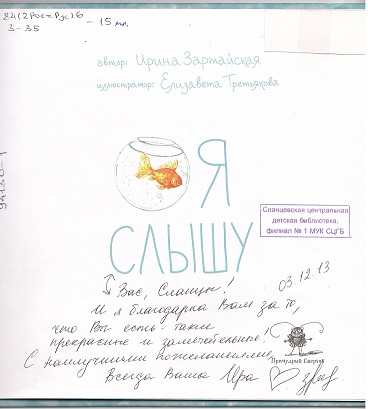 84(2Рос=Рус)6
З-35
- 15 мл.
автор: Ирина Зартайская
иллюстратор: Елизавета Третьякова
Я
СЛЫШУ
Сланцевская центральная
детская библиотека,
филиал № 1 МУК СЦГБ
94130-1
03.12.13
Вас, Сланцы!
И я благодарна Вам за то,
что Вы есть - такие
прекрасные и замечательные!
С наилучшими пожеланиями,
Всегда Ваша Ира